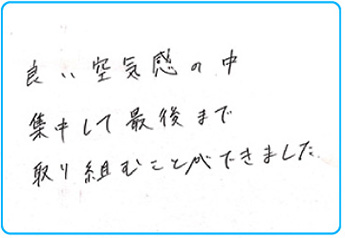 良い空気感の中
集中して最後まで
取り組むことができました